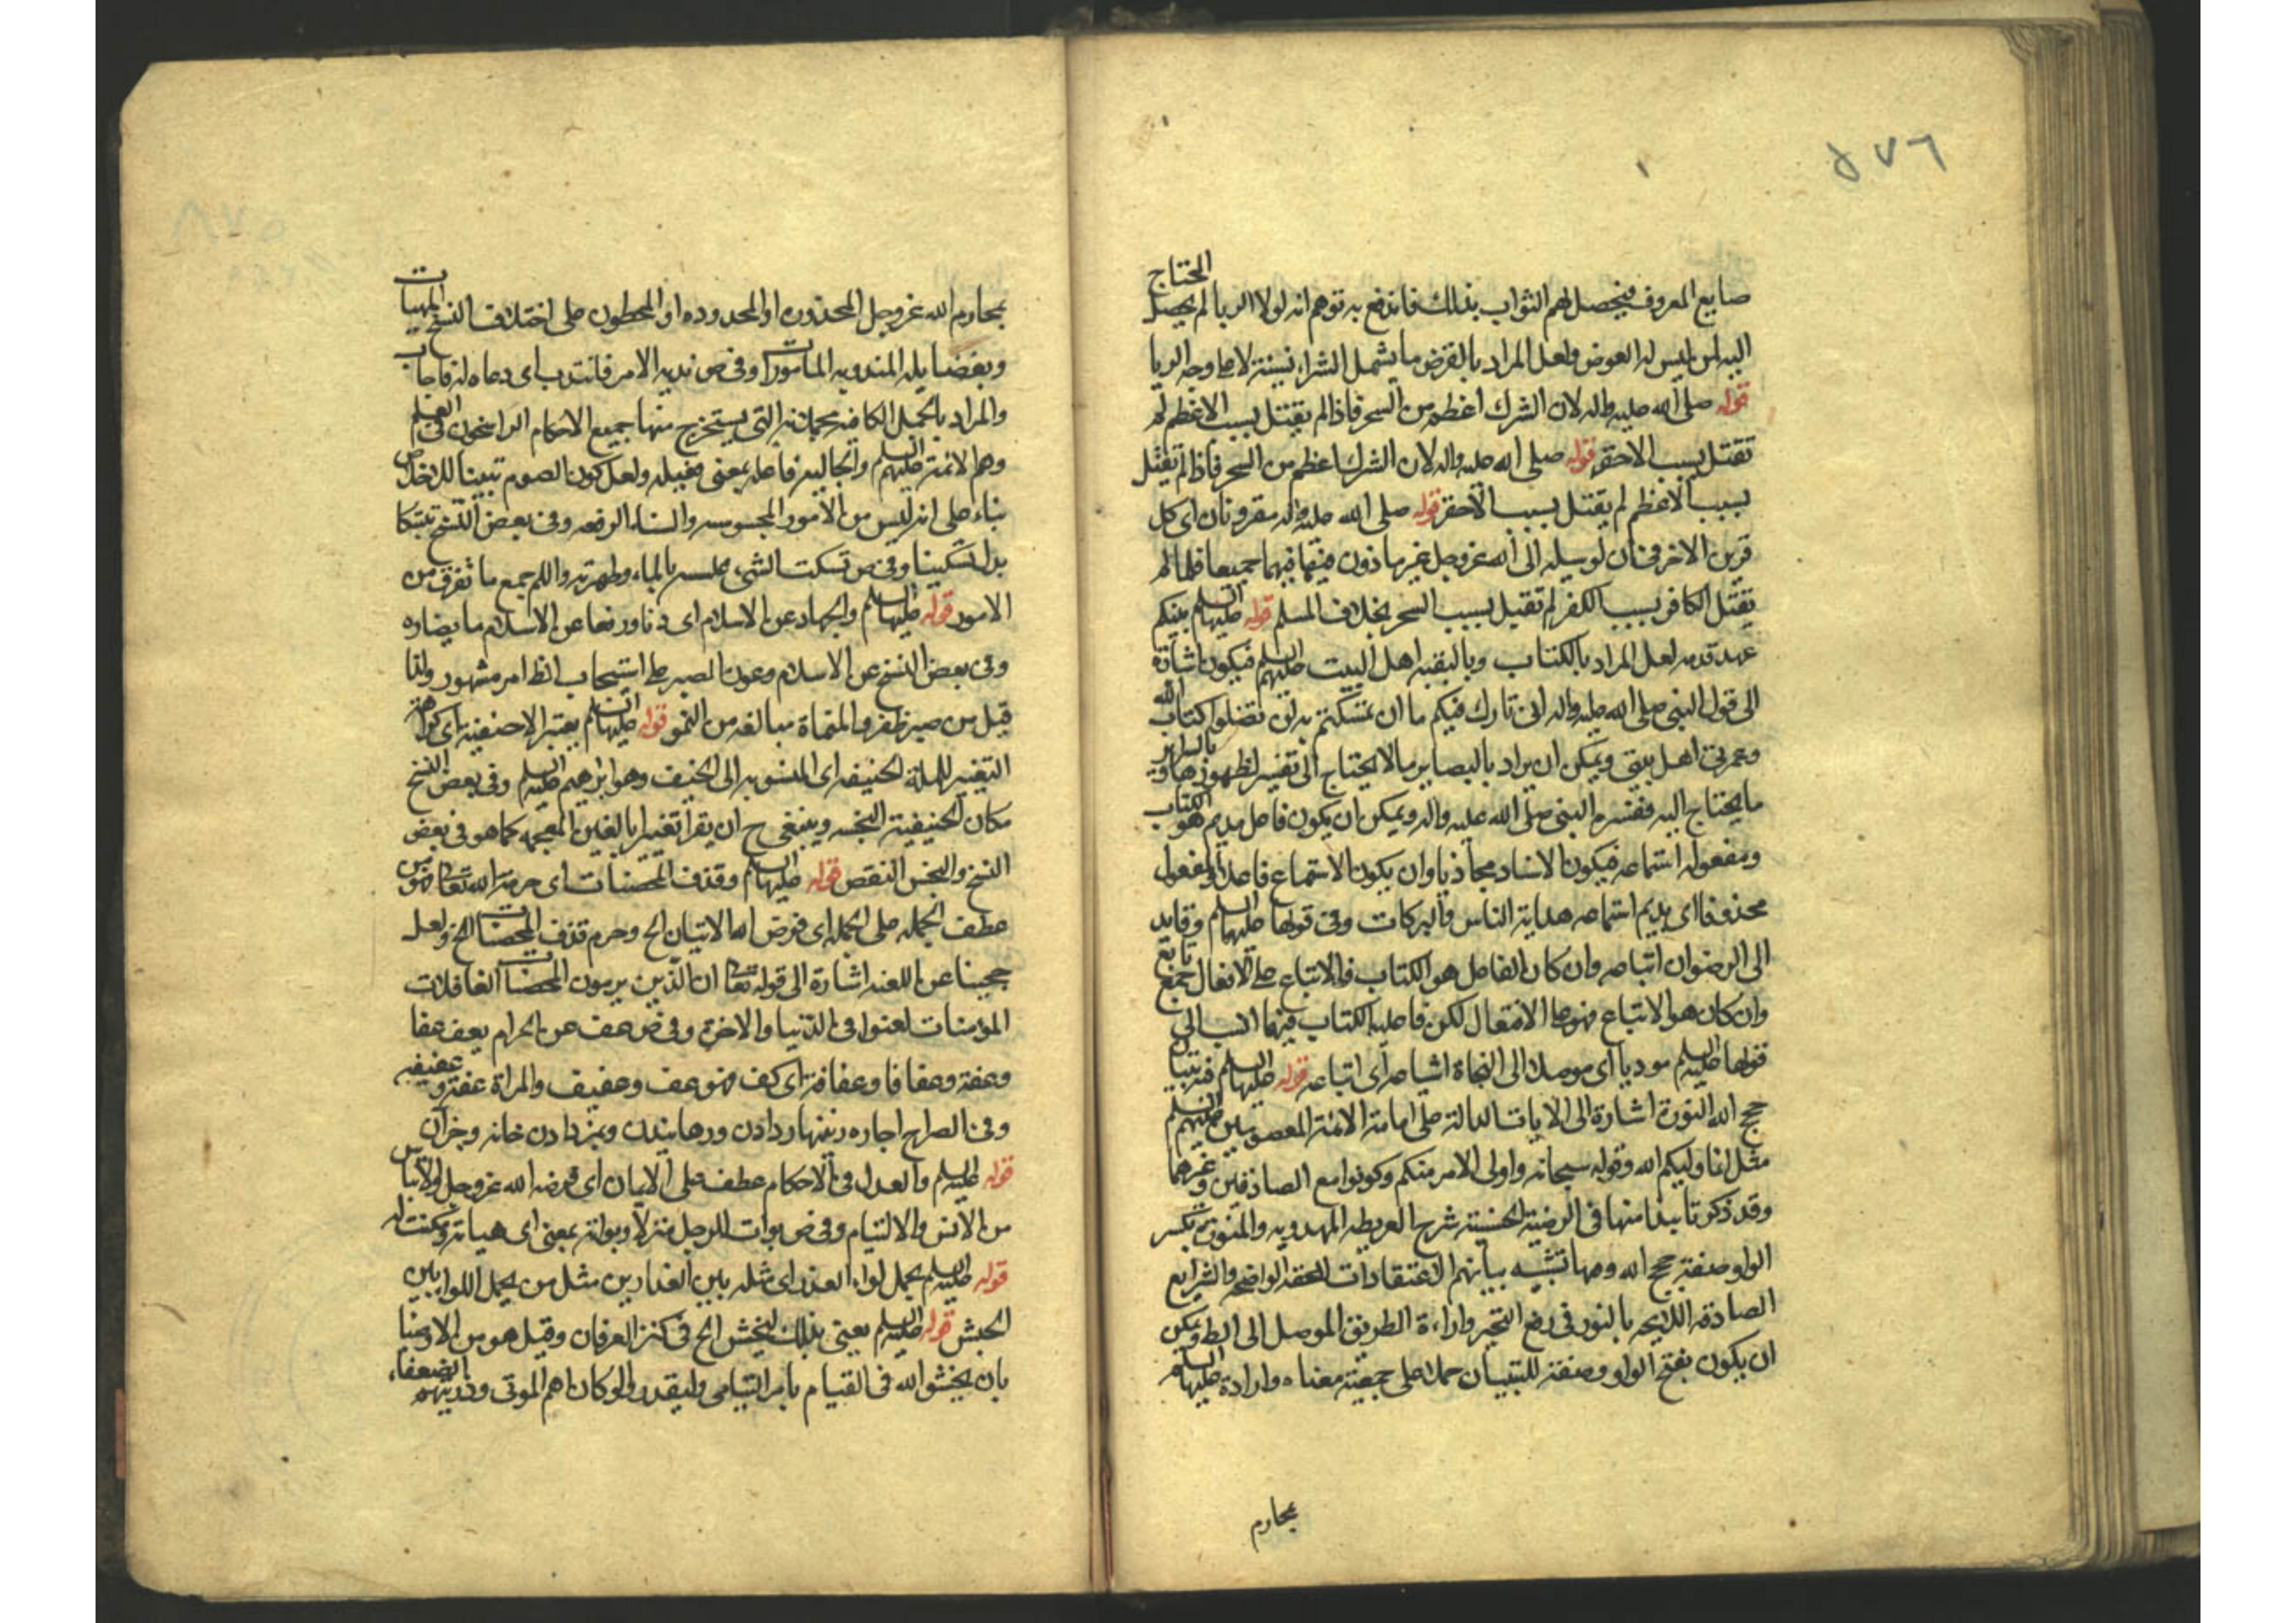 ٥٧٦
صايع المعروف فيحصل لهم الثواب بذلك فاندفع به توهم انه لولا الربا لم يحصل المحتاج
اليه لمن ليس له العوض ولعل المراد بالقرض ما يشمل الشراء نسيئة لا على وجه الربا
قوله صلى الله عليه واله لان الشرك اعظم من السحر فاذا لم يقتل بسبب الاعظم لم
تقتل بسبب الاحقر قوله صلى الله عليه واله لان الشرك اعظم من السحر فاذا لم يقتل
بسبب الاعظم لم يقتل بسبب الاحقر قوله صلى الله عليه واله مقرونان اى كل
قرين الاخر فى ان لوسيله الى الله عزوجل غيرها ذون فيهما جميعا فلما لم
يقتل الكافر بسبب الكفر لم تقبل بسبب السحر بخلاف المسلم قوله عليها السلم بينكم
عهد قدمه لعل المراد بالكتاب وبالبقيه اهل البيت عليهم السلم فيكون اشارة
الى قول النبى صلى الله عليه واله انى تارك فيكم ما ان تمسكتم به لن تضلوا كتاب الله
وعترتى اهل بيتى ويمكن ان يراد بالبصاير ما لا يحتاج الى تفسير لظهورها وبالسراير
ما يحتاج اليه ففسره النبى صلى الله عليه واله ويمكن ان يكون فاعل مديم هو الكتاب
ومفعوله استماعه فيكون الاسناد مجازيا وان يكون الاستماع فاعلا والمفعول
محذوفا اى يديم استماعه هداية الناس والبركات وفى قولها عليها السلم وقايد
الى الرضوان اتباعه وان كان الفاعل هو الكتاب فالاتباع على الافعال جمع تابع
وان كان هو الاتباع فهو على الافتعال لكن فاعليه الكتاب فيهما انسب الى
قولها عليها السلم موديا اى موصلا الى النجاة اشياعه اى اتباعه قوله عليها السلم فيه تبيان
حجج الله المنورة اشارة الى الايات الدالة على امامة الائمة المعصومين عليهم السلم
مثل انما وليكم الله وقوله سبحانه واولى الامر منكم وكونوا مع الصادقين وغيرهما
وقد ذكرنا نبذا منها فى الرضية الحسينية شرح العريضه المهدويه والمنورة بكسر
الواو صفة حجج الله وصها تشبيه بيانهم الاعتقادات الحقه الواضحه والشرايع
الصادقه اللايحه بالنور فى رفع التحير واراءة الطريق الموصل الى المط ويمكن
ان يكون بفتح الواو وصفة للتبيان حملا على جمعية معناه وارادة عليها السلم
بمحارم
بمحارم الله عزوجل المحذوره او المحدوده او المحظوره على اختلاف النسخ المهيات
وبفضايله المندوبه المامورات وفى ص ندبه الامر فانتدب اى دعاه له فاجاب
والمراد بالجمل الكافيه مجملاته التى يستخرج منها جميع الاحكام الراسخون فى العلم
وهم الائمة عليهم السلم والجاليه فاعله بمعنى مفعيله ولعل كون الصوم تبيينا للاخلاص
بناء على انه ليس من الامور المحسوسه والسناء الرفعه وفى بعض النسخ تبتكا
بدل تسكينا وفى ص تسكت الشى غسلته بالماء وطهرته واللم جمع ما تفرق من
الامور قوله عليها السلم والجهاد عن الاسلام اى ذبا ودفعا عن الاسلام ما يضاره
وفى بعض النسخ عز الاسلام وعون الصبر على استيجاب الظ امر مشهور ولذا
قيل من صبر ظفر والمنماة مبالغه من النمو قوله عليها السلم يعتبر الاحنفيه اى كراهة
التغيير للملة الحنيفه اى المنسوبه الى الحنيف وهو ابراهيم عليه السلم وفى بعض النسخ
مكان الحنيفية البخسه وينبغى ح ان يقرا تغييرا بالغين المعجمه كما هو فى بعض
النسخ والبخس النقص قوله عليها السلم وقذف المحصنات اى حرمة الله تعالى فهو من
عطف الجمله على الجمله اى فرض الله الاتيان الخ وحرم قذف المحصنات الخ ولعل
حجبنا عن اللعنه اشارة الى قوله تعالى ان الذين يرمون المحصنات الغافلات
المؤمنات لعنوا فى الدنيا والاخرة وفى ص عف عن الحرام يعف عفا
وعفة وعفافا وعفافة اى كف فهو عف وعفيف والمراة عفة وعفيفه
وفى الصراح اجاره زينهار دادن ورهانيدن وبمزد دادن خانه وجز ان
قوله عليها السلم والعدل فى الاحكام عطف على الايمان اى فرض الله عزوجل ولايناس
من الانس والالتيام وفى ص بوات للرجل منزلا وبواته بمعنى اى هياته ومكنت له
قوله عليها السلم يحمل لواء العذر اى مثله بين الغدارين مثل من يحمل اللوا بين
الحبش قوله عليها السلم يعنى بذلك ليخش الخ فى كنز العرفان وقيل هو من الاوصيا
بان يخشوا الله فى القيام بامر اليتامى وليقدروا لو كان اهم الموتى وذريتهم الضعفاء